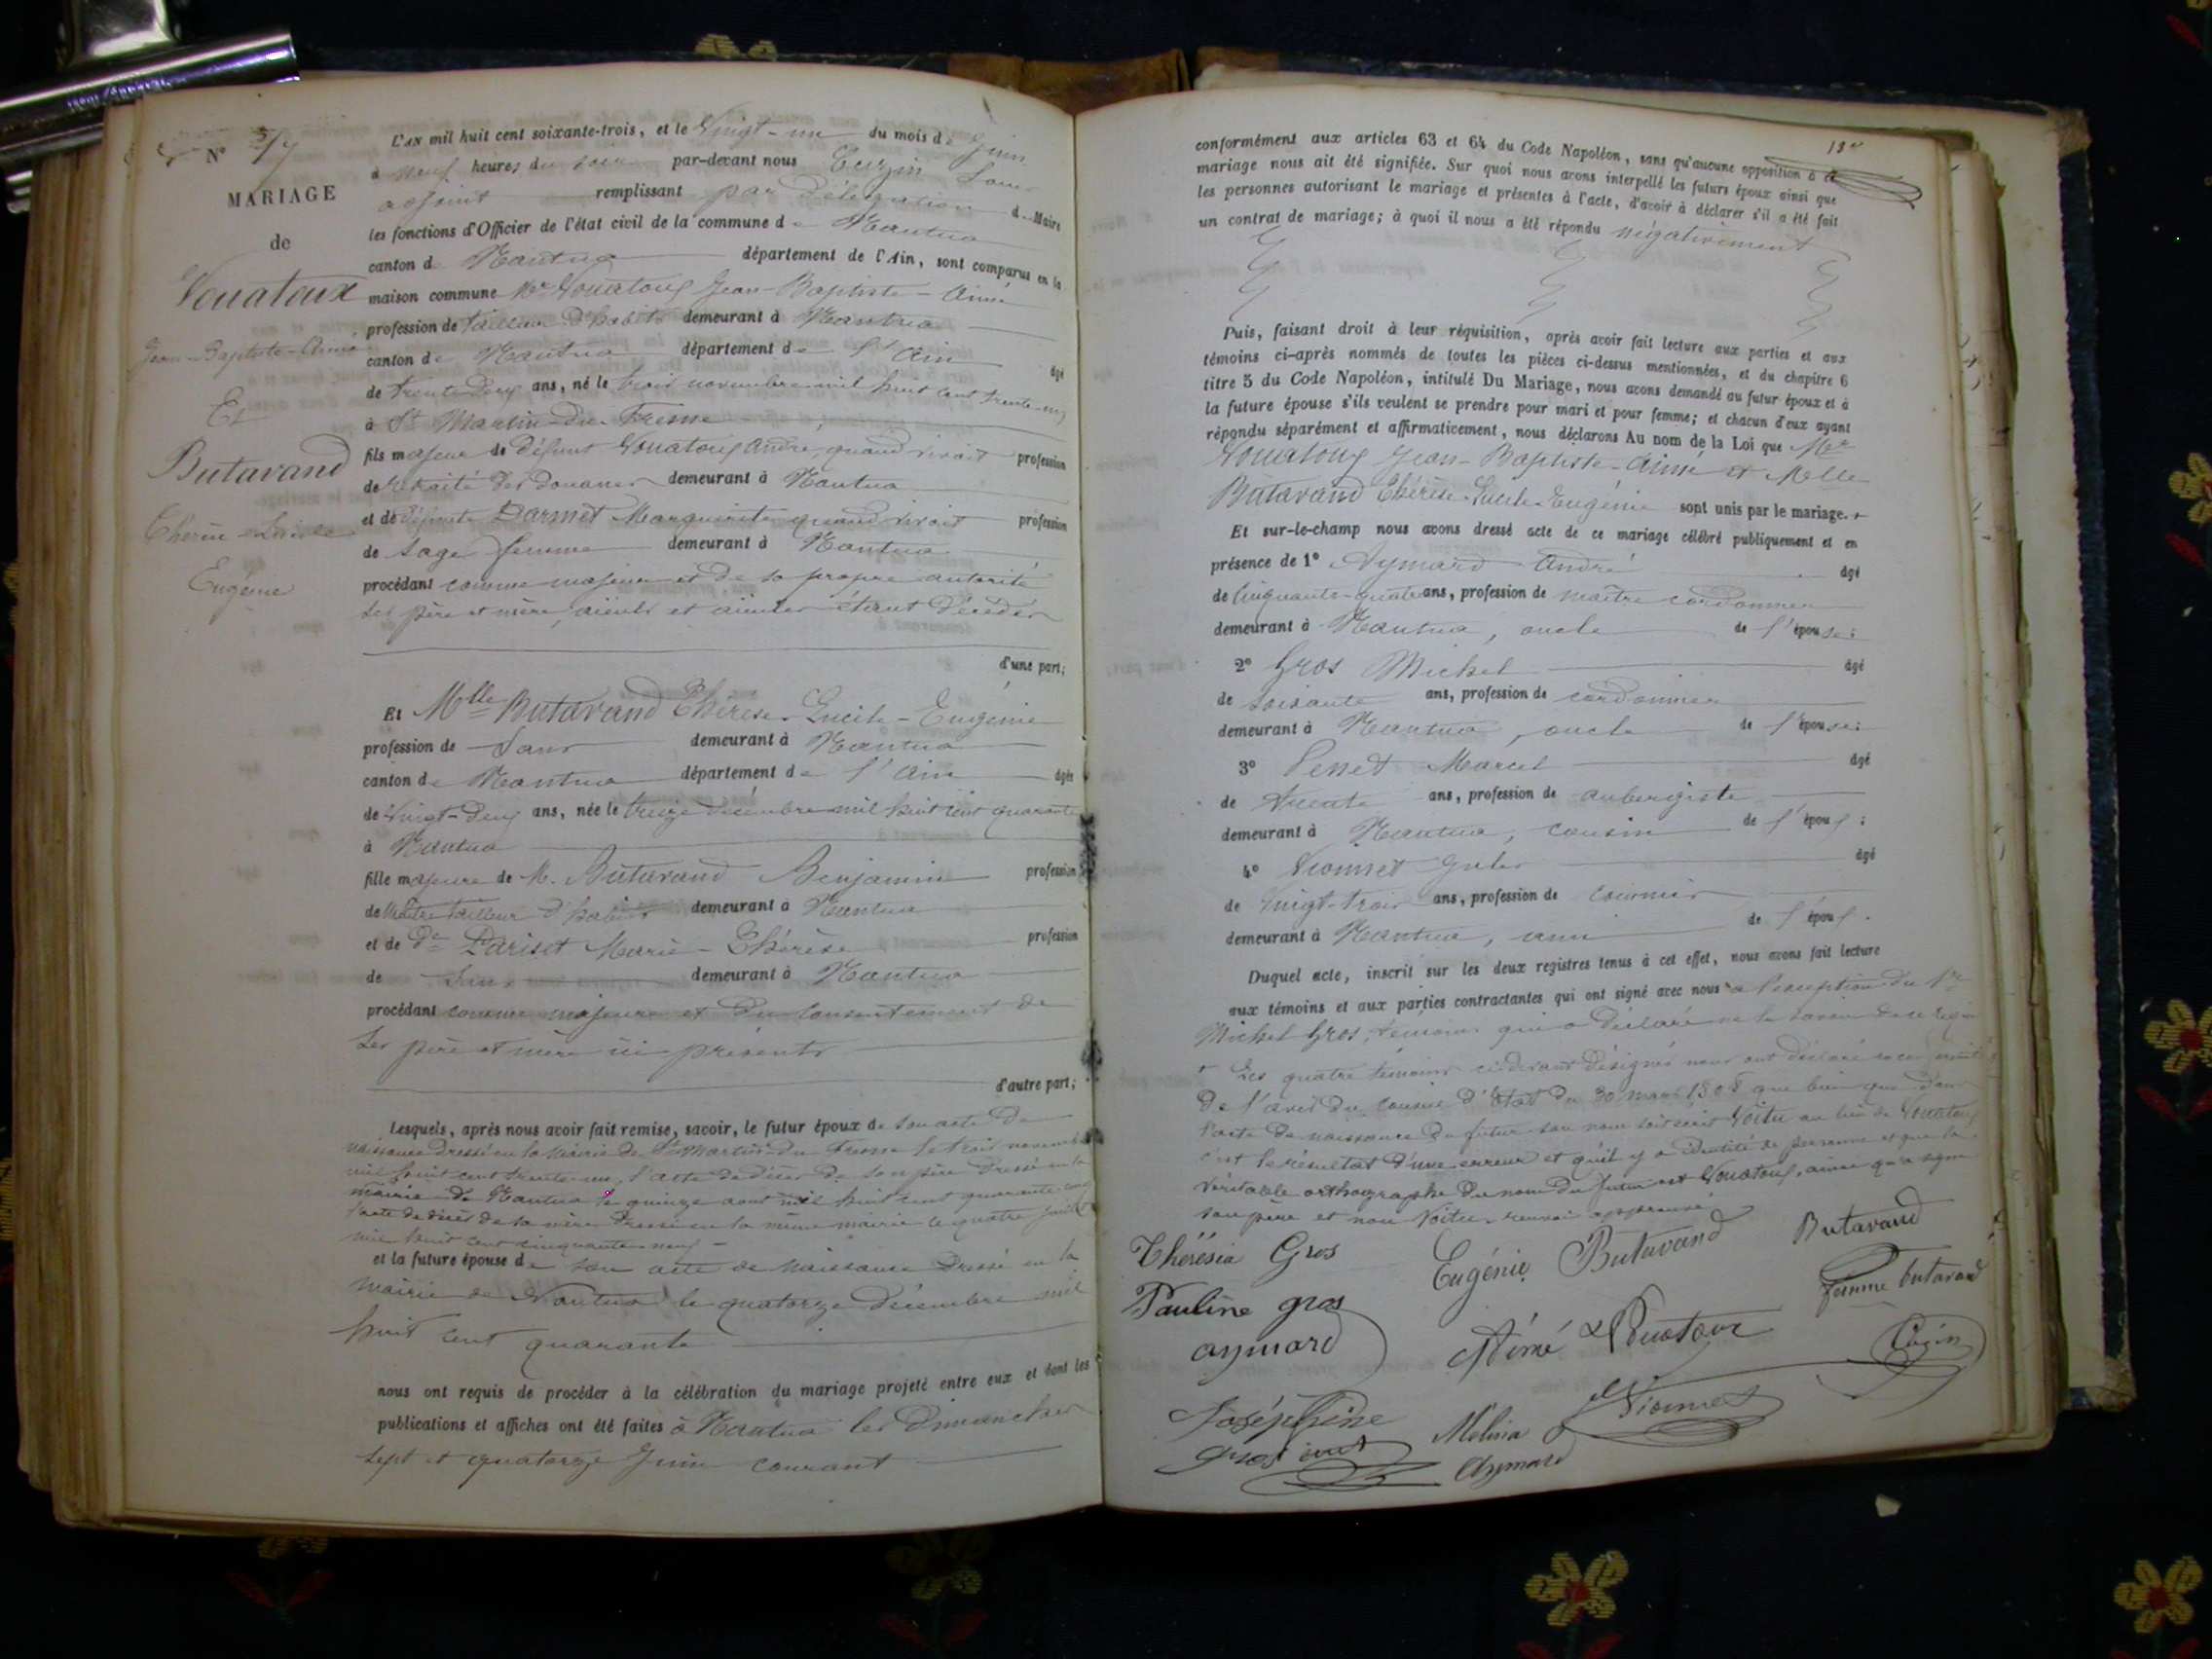 N° 
MARIAGE
de
Vouatoux
Jean-Baptiste-Aimé
Et
Butavand
Thérèse-Lucile
Eugénie
L'AN mil huit cent soixante-trois, et le Vingt-un du mois de Juin
à neuf heures du soir par-devant nous Louis
adjoint remplissant par délégation du Maire
les fonctions d'Officier de l'état civil de la commune de Nantua
canton de Nantua département de l'Ain, sont comparus en la
maison commune Mr Vouatoux Jean-Baptiste-Aimé
profession de tailleur d'habits demeurant à Nantua
canton de Nantua département de l'Ain âgé
de trente deux ans, né le trois novembre mil huit cent trente-un
à St Martin-du-Fresne
fils majeur de défunt Vouatoux André, quand vivait profession
de retraité des douanes demeurant à Nantua
et de défunte Darmet Marguerite quand vivait profession
de sage femme demeurant à Nantua
procédant comme majeur et de sa propre autorité
ses père et mère, aïeuls et aïeules étant décédés
d'une part;
Et Mlle Butavand Thérèse-Lucile-Eugénie
profession de Sans demeurant à Nantua
canton de Nantua département de l'Ain âgée
de Vingt-deux ans, née le treize décembre mil huit cent quarante
à Nantua
fille majeure de M. Butavand Benjamin profession
de Maître tailleur d'habits demeurant à Nantua
et de De Pariset Marie-Thérèse profession
de Sans demeurant à Nantua
procédant comme majeure et du consentement de
ses père et mère ici présents
d'autre part;
Lesquels, après nous avoir fait remise, savoir, le futur époux de son acte de
naissance dressé en la mairie de St Martin-du-Fresne le trois novembre
mil huit cent trente-un, l'acte de décès de son père dressé en la
mairie de Nantua le quinze août mil huit cent quarante-cinq
l'acte de décès de sa mère dressé en la même mairie le quatre juillet
mil huit cent cinquante-neuf
et la future épouse de son acte de naissance dressé en la
mairie de Nantua le quatorze décembre mil
huit cent quarante
nous ont requis de procéder à la célébration du mariage projeté entre eux et dont les
publications et affiches ont été faites à Nantua les Dimanches
sept et quatorze Juin courant
conformément aux articles 63 et 64 du Code Napoléon, sans qu'aucune opposition à ce
mariage nous ait été signifiée. Sur quoi nous avons interpellé les futurs époux ainsi que
les personnes autorisant le mariage et présentes à l'acte, d'avoir à déclarer s'il a été fait
un contrat de mariage; à quoi il nous a été répondu négativement
Puis, faisant droit à leur réquisition, après avoir fait lecture aux parties et aux
témoins ci-après nommés de toutes les pièces ci-dessus mentionnées, et du chapitre 6
titre 5 du Code Napoléon, intitulé Du Mariage, nous avons demandé au futur époux et à
la future épouse s'ils veulent se prendre pour mari et pour femme; et chacun d'eux ayant
répondu séparément et affirmativement, nous déclarons Au nom de la Loi que Mr
Vouatoux Jean-Baptiste-Aimé et Melle
Butavand Thérèse-Lucile-Eugénie sont unis par le mariage. +
Et sur-le-champ nous avons dressé acte de ce mariage célébré publiquement et en
présence de 1° Aymard André âgé
de Cinquante-quatre ans, profession de maître cordonnier
demeurant à Nantua, oncle de l'épouse;
2° Gros Michel âgé
de soixante ans, profession de cordonnier
demeurant à Nantua, oncle de l'épouse;
3° Marcel âgé
de trente ans, profession de aubergiste
demeurant à Nantua, cousin de l'époux;
4° Vionnet Jules âgé
de Vingt-trois ans, profession de
demeurant à Nantua, ami de l'époux.
Duquel acte, inscrit sur les deux registres tenus à cet effet, nous avons fait lecture
aux témoins et aux parties contractantes qui ont signé avec nous à l'exception du Sr
Michel Gros, témoin qui a déclaré ne le savoir de ce requis
+ Les quatre témoins ci-devant désignés nous ont déclaré
de l'avis du conseil d'Etat du 30 mars 1808 que bien que dans
l'acte de naissance du futur son nom soit écrit Voitu au lieu de Vouatoux
c'est le résultat d'une erreur et qu'il y a identité de personne et que la
véritable orthographe du nom du futur est Vouatoux, ainsi qu'a signé
son père et non Voitu. renvoi approuvé
Thérésia Gros
Eugénie Butavand
Butavand
Pauline gros
femme butavand
aymard
Aimé Vouatoux
Joséphine
gros
Mélina
Aymard
Vionnet